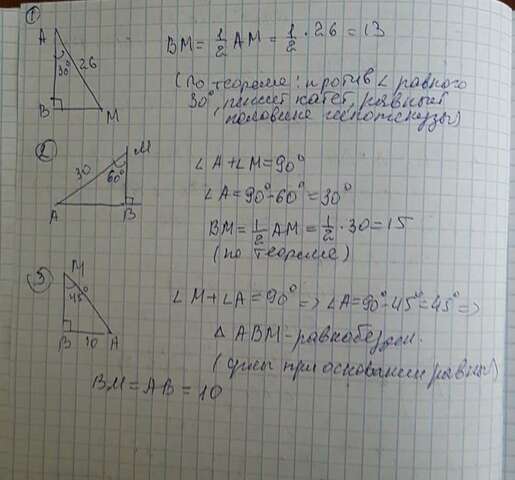 1
A
30°
26
B
M
BM = 1/2 AM = 1/2 · 26 = 13
(по теореме: против ∠ равного
30°, лежит катет, равный
половине гипотенузы)
2
30
M
60°
A
B
∠A + ∠M = 90°
∠A = 90° - 60° = 30°
BM = 1/2 AM = 1/2 · 30 = 15
(по теореме)
3
M
45°
B
10
A
∠M + ∠A = 90° => ∠A = 90° - 45° = 45° =>
△ABM - равнобедрен.
(углы при основании равны)
BM = AB = 10